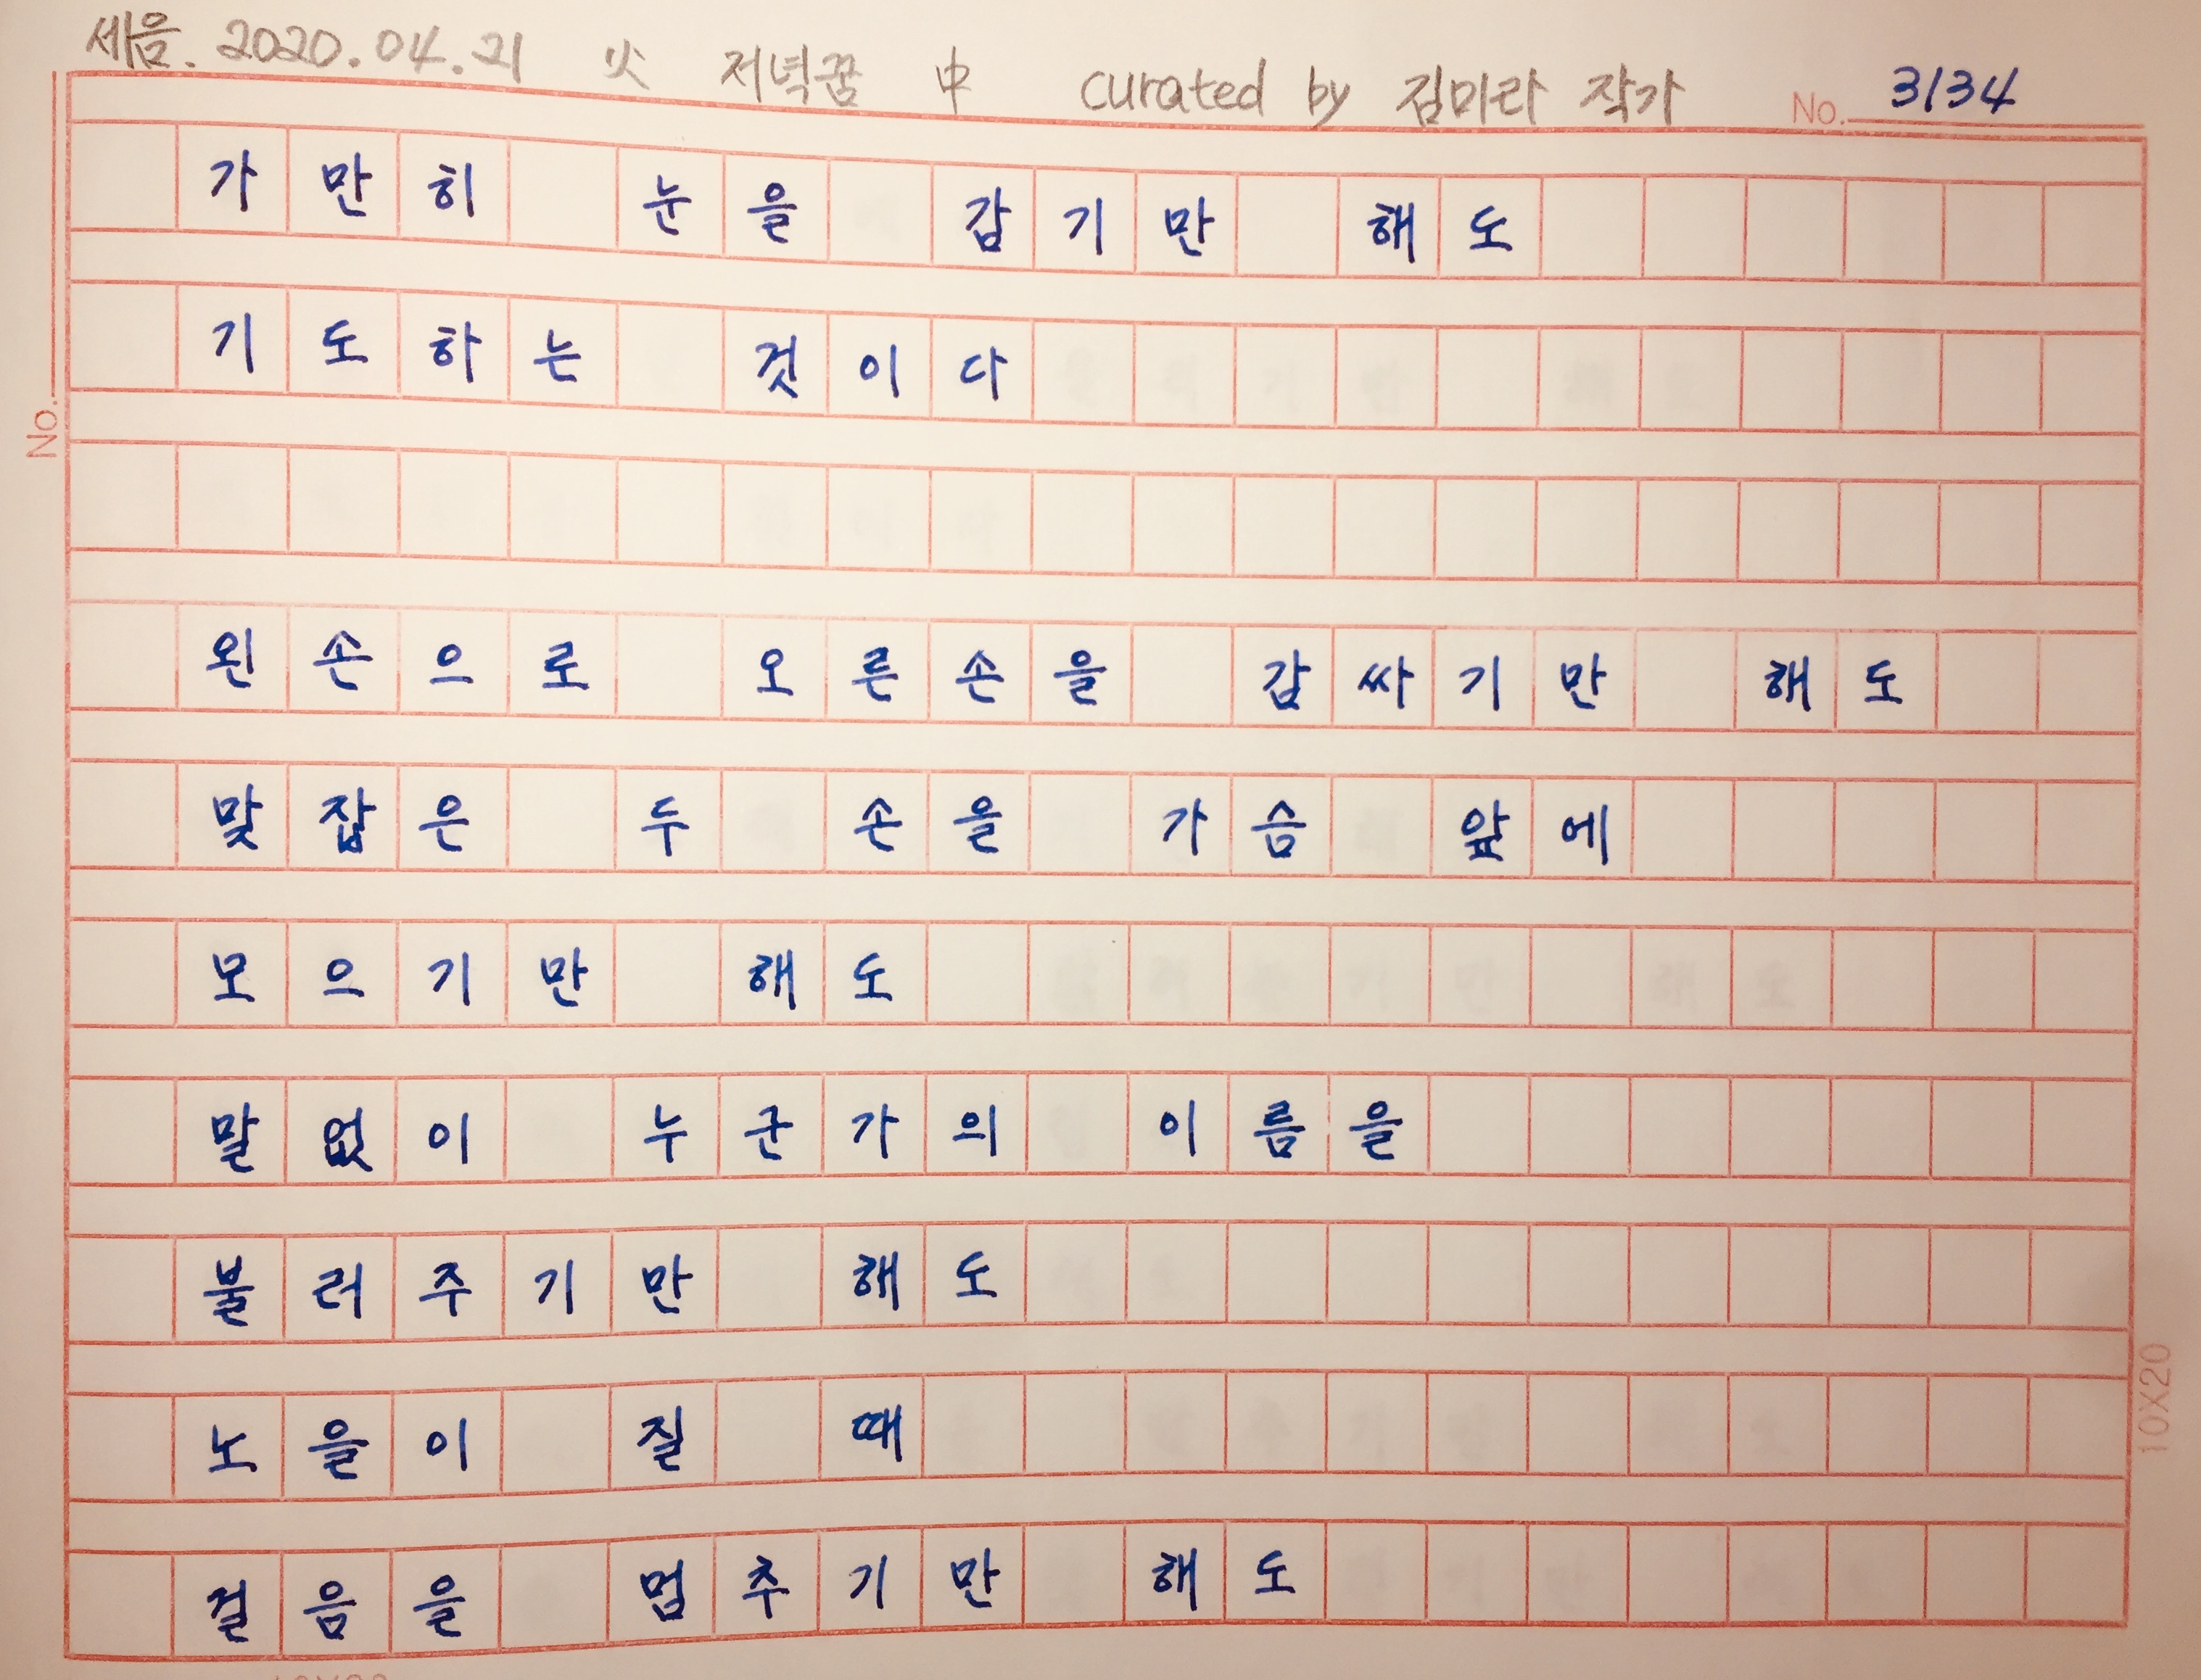 세음. 2020.04.21 火 저녁꿈 中 curated by 김미라 작가 No. 3134
가만히 눈을 감기만 해도
기도하는 것이다
No.
왼손으로 오른손을 감싸기만 해도
맞잡은 두 손을 가슴 앞에
모으기만 해도
말없이 누군가의 이름을
불러주기만 해도
노을이 질 때
걸음을 멈추기만 해도
10X20